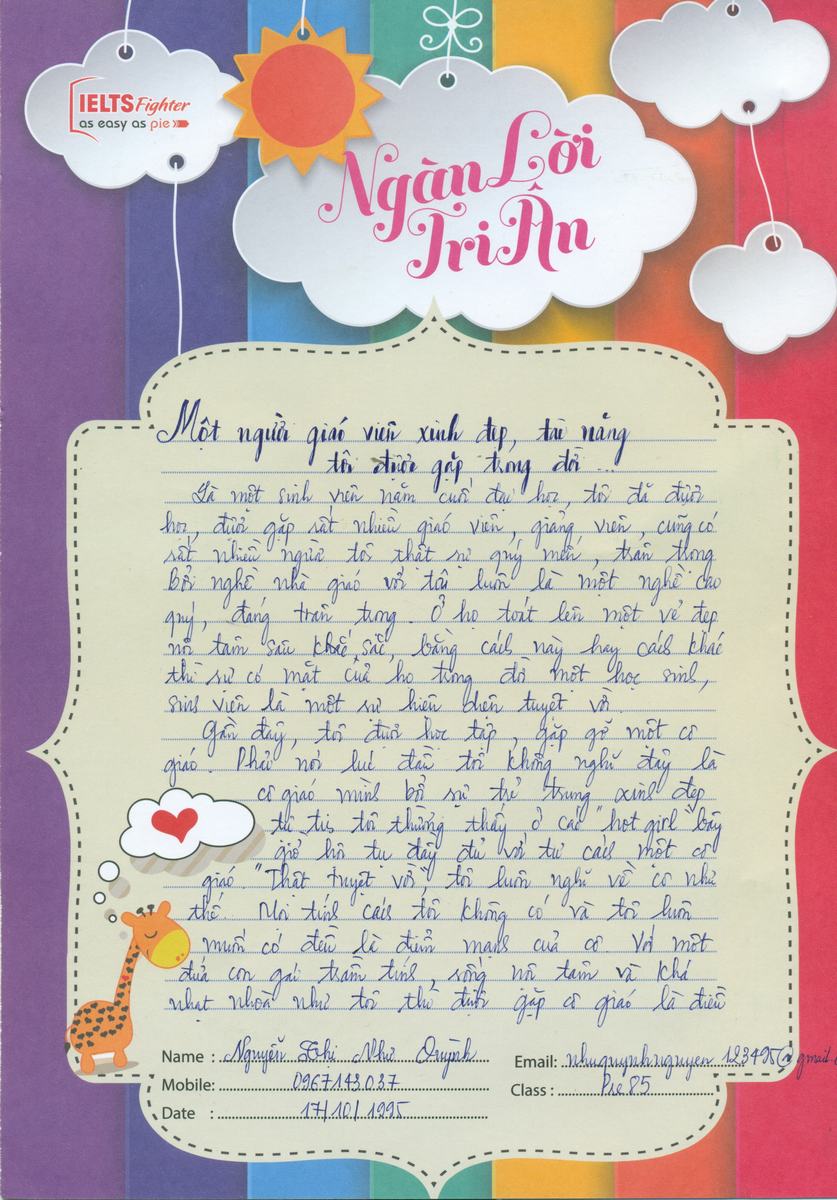 IELTS Fighter
as easy as pie
Ngàn Lời
Tri Ân
Một người giáo viên xinh đẹp, tài năng
tôi được gặp trong đời ...
Là một sinh viên năm cuối đại học, tôi đã được
học, được gặp rất nhiều giáo viên, giảng viên, cũng có
rất nhiều người tôi thật sự quý mến, trân trọng
Bởi nghề nhà giáo với tôi luôn là một nghề cao
quý, đáng trân trọng. Ở họ toát lên một vẻ đẹp
nội tâm sâu sắc, bằng cách này hay cách khác
thì sự có mặt của họ trong đời một học sinh,
sinh viên là một sự hiện diện tuyệt vời.
Gần đây, tôi được học tập, gặp gỡ một cô
giáo. Phải nói lúc đầu tôi không nghĩ đây là
cô giáo mình bởi sự trẻ trung xinh đẹp
tự tin tôi thường thấy ở các "hot girl" bây
giờ hội tụ đầy đủ với tư cách một cô
giáo. "Thật tuyệt vời", tôi luôn nghĩ về cô như
thế. Mọi tính cách tôi không có và tôi luôn
muốn có đều là điểm mạnh của cô. Với một
đứa con gái trầm tính, sống nội tâm và khá
nhạt nhoà như tôi thì được gặp cô giáo là điều
Name : Nguyễn Thị Như Quỳnh
Email: nhuquynhnguyen123495@gmail.
Mobile: 0967143037
Class : Pre85
Date : 17/10/1995